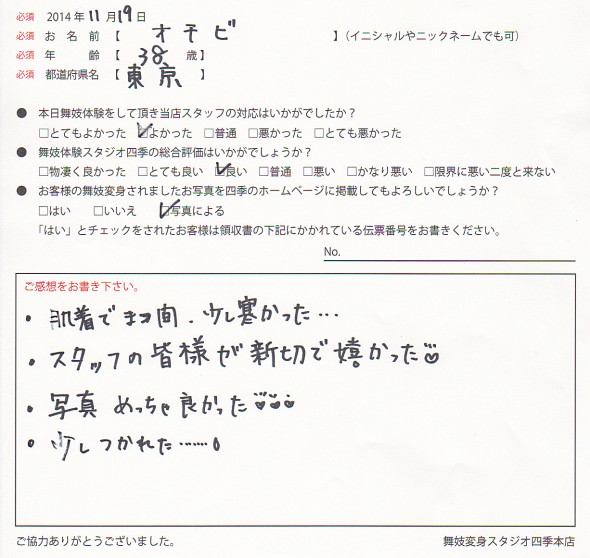 必須 2014年11月19日
必須 お名前【 オチビ 】(イニシャルやニックネームでも可)
必須 年齢【 38 歳】
必須 都道府県名【 東京 】
● 本日舞妓体験をして頂き当店スタッフの対応はいかがでしたか?
□とてもよかった ☑よかった □普通 □悪かった □とても悪かった
● 舞妓体験スタジオ四季の総合評価はいかがでしょうか?
□物凄く良かった □とても良い ☑良い □普通 □悪い □かなり悪い □限界に悪い二度と来ない
● お客様の舞妓変身されましたお写真を四季のホームページに掲載してもよろしいでしょうか?
□はい □いいえ ☑写真による
「はい」とチェックをされたお客様は領収書の下記にかかれている伝票番号をお書きください。
No.
ご感想をお書き下さい。
・肌着でまつ間、少し寒かった…
・スタッフの皆様が新切で嬉かった
・写真 めっちゃ良かった
・少しつかれた……。
ご協力ありがとうございました。 舞妓変身スタジオ四季本店